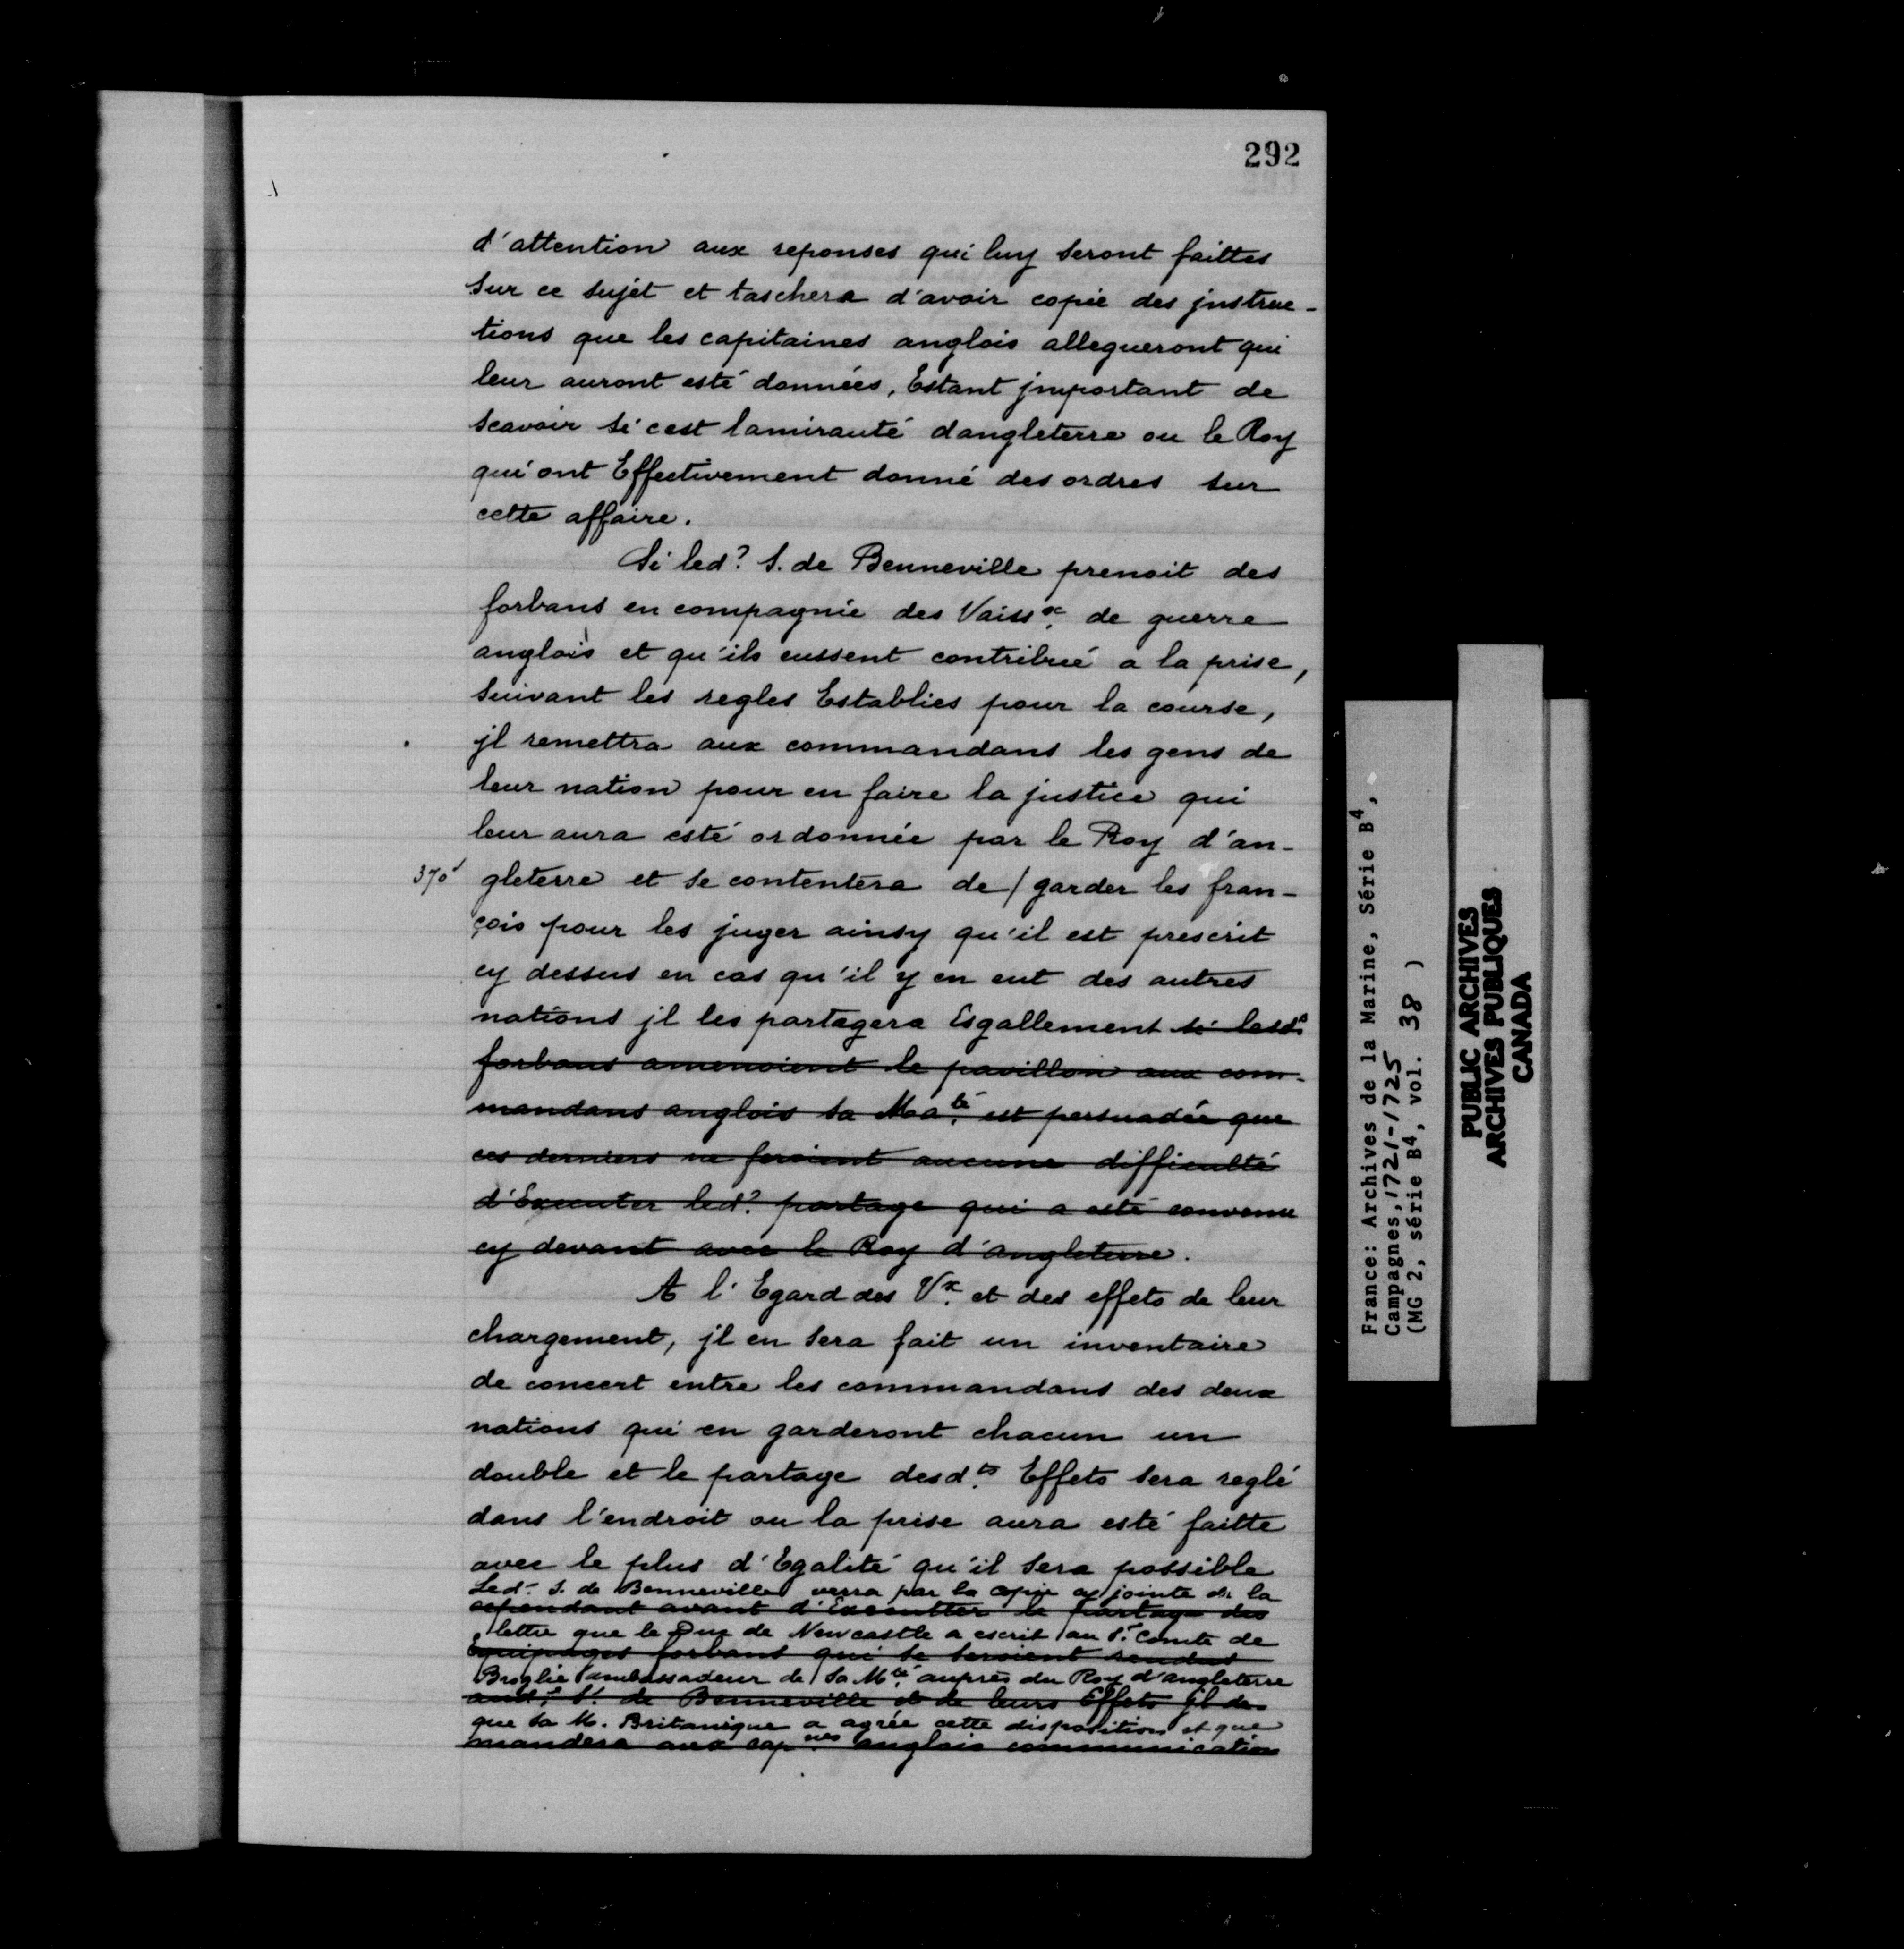 292
d'attention aux reponses qui luy seront faittes
sur ce sujet et taschera d'avoir copie des jnstruc-
tions que les capitaines anglois allegueront qui
leur auront esté données, Estant jmportant de
scavoir si cest lamirauté dangleterre ou le Roy
qui ont Effectivement donné des ordres sur
cette affaire.
Si led? S. de Benneville prenoit des
forbans en compagnie des Vaissx. de guerre
anglois et qu'ils eussent contribué a la prise,
suivant les regles Establies pour la course,
jl remettra aux commandans les gens de
leur nation pour en faire la justice qui
leur aura esté ordonnée par le Roy d'an-
370 gleterre et se contentera de / garder les fran-
çois pour les juger ainsy qu'il est prescrit
cy dessus en cas qu'il y en eut des autres
nations jl les partagera Esgallement si lesds
forbans amenoient le pavillon aux com-
mandans anglois sa Maté. est persuadée que
ces derniers ne feroient aucune difficulté
d'Executer led? partage qui a esté convenu
cy devant avec le Roy d'angleterre.
A l'Egard des Vx. et des effets de leur
chargement, jl en sera fait un inventaire
de concert entre les commandans des deux
nations qui en garderont chacun un
double et le partage desd.ts Effets sera reglé
dans l'endroit ou la prise aura esté faitte
avec le plus d'Egalité qu'il sera possible
Led. S. de Benneville verra par la copie cy jointe de la
cependant avant d'Executter le partage des
lettre que le Duc de Newcastle a escrit au Sr. Comte de
Equipages forbans qui se seroient rendus
Broglie ambassadeur de Sa Mté. auprès du Roy d'angleterre
aud. S. de Benneville et de leurs Effets jl de-
que Sa M. Britanique a agrée cette disposition et que
mandera aux capnes. anglois communication
France: Archives de la Marine, Série B4,
Campagnes, 1721-1725
(MG 2, série B4, vol. 38 )
PUBLIC ARCHIVES
ARCHIVES PUBLIQUES
CANADA